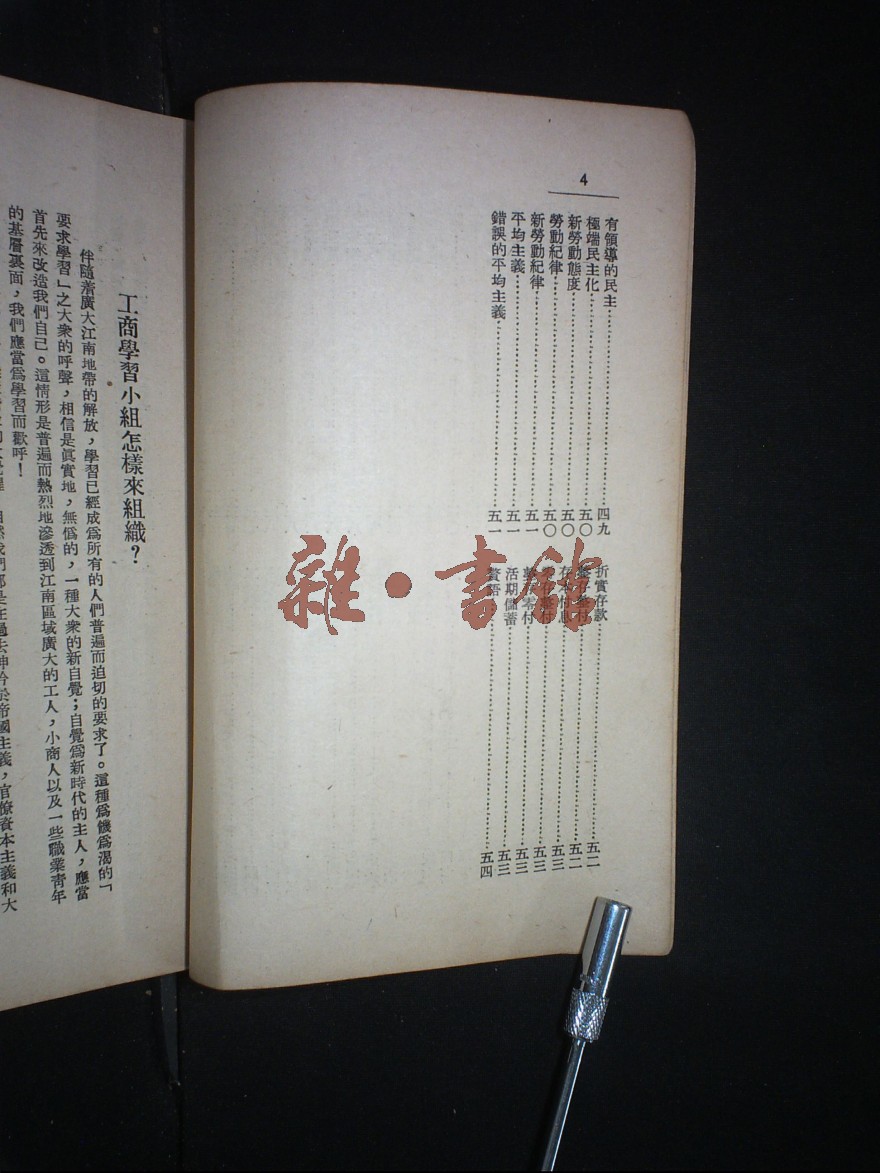 4
有領導的民主…四九
極端民主化…五〇
新勞動態度…五〇
勞動紀律…五〇
新勞動紀律…五一
平均主義…五一
錯誤的平均主義…五一
折實存款…五二
付…五二
存本付息…五三
付…五三
零付…五三
活期儲蓄…五三
贅語…五四
雜·書館
工商學習小組怎樣來組織？
伴隨着廣大江南地帶的解放，學習已經成爲所有的人們普遍而迫切的要求了。這種爲饑爲渴的「
要求學習」之大衆的呼聲，相信是眞實地，無僞的，一種大衆的新自覺；自覺爲新時代的主人，應當
首先來改造我們自己。這情形是普遍而熱烈地滲透到江南區域廣大的工人，小商人以及一些職業青年
的基層裏面，我們應當爲學習而歡呼！
自然我們都是在過去神聖帝國主義，官僚資本主義和大